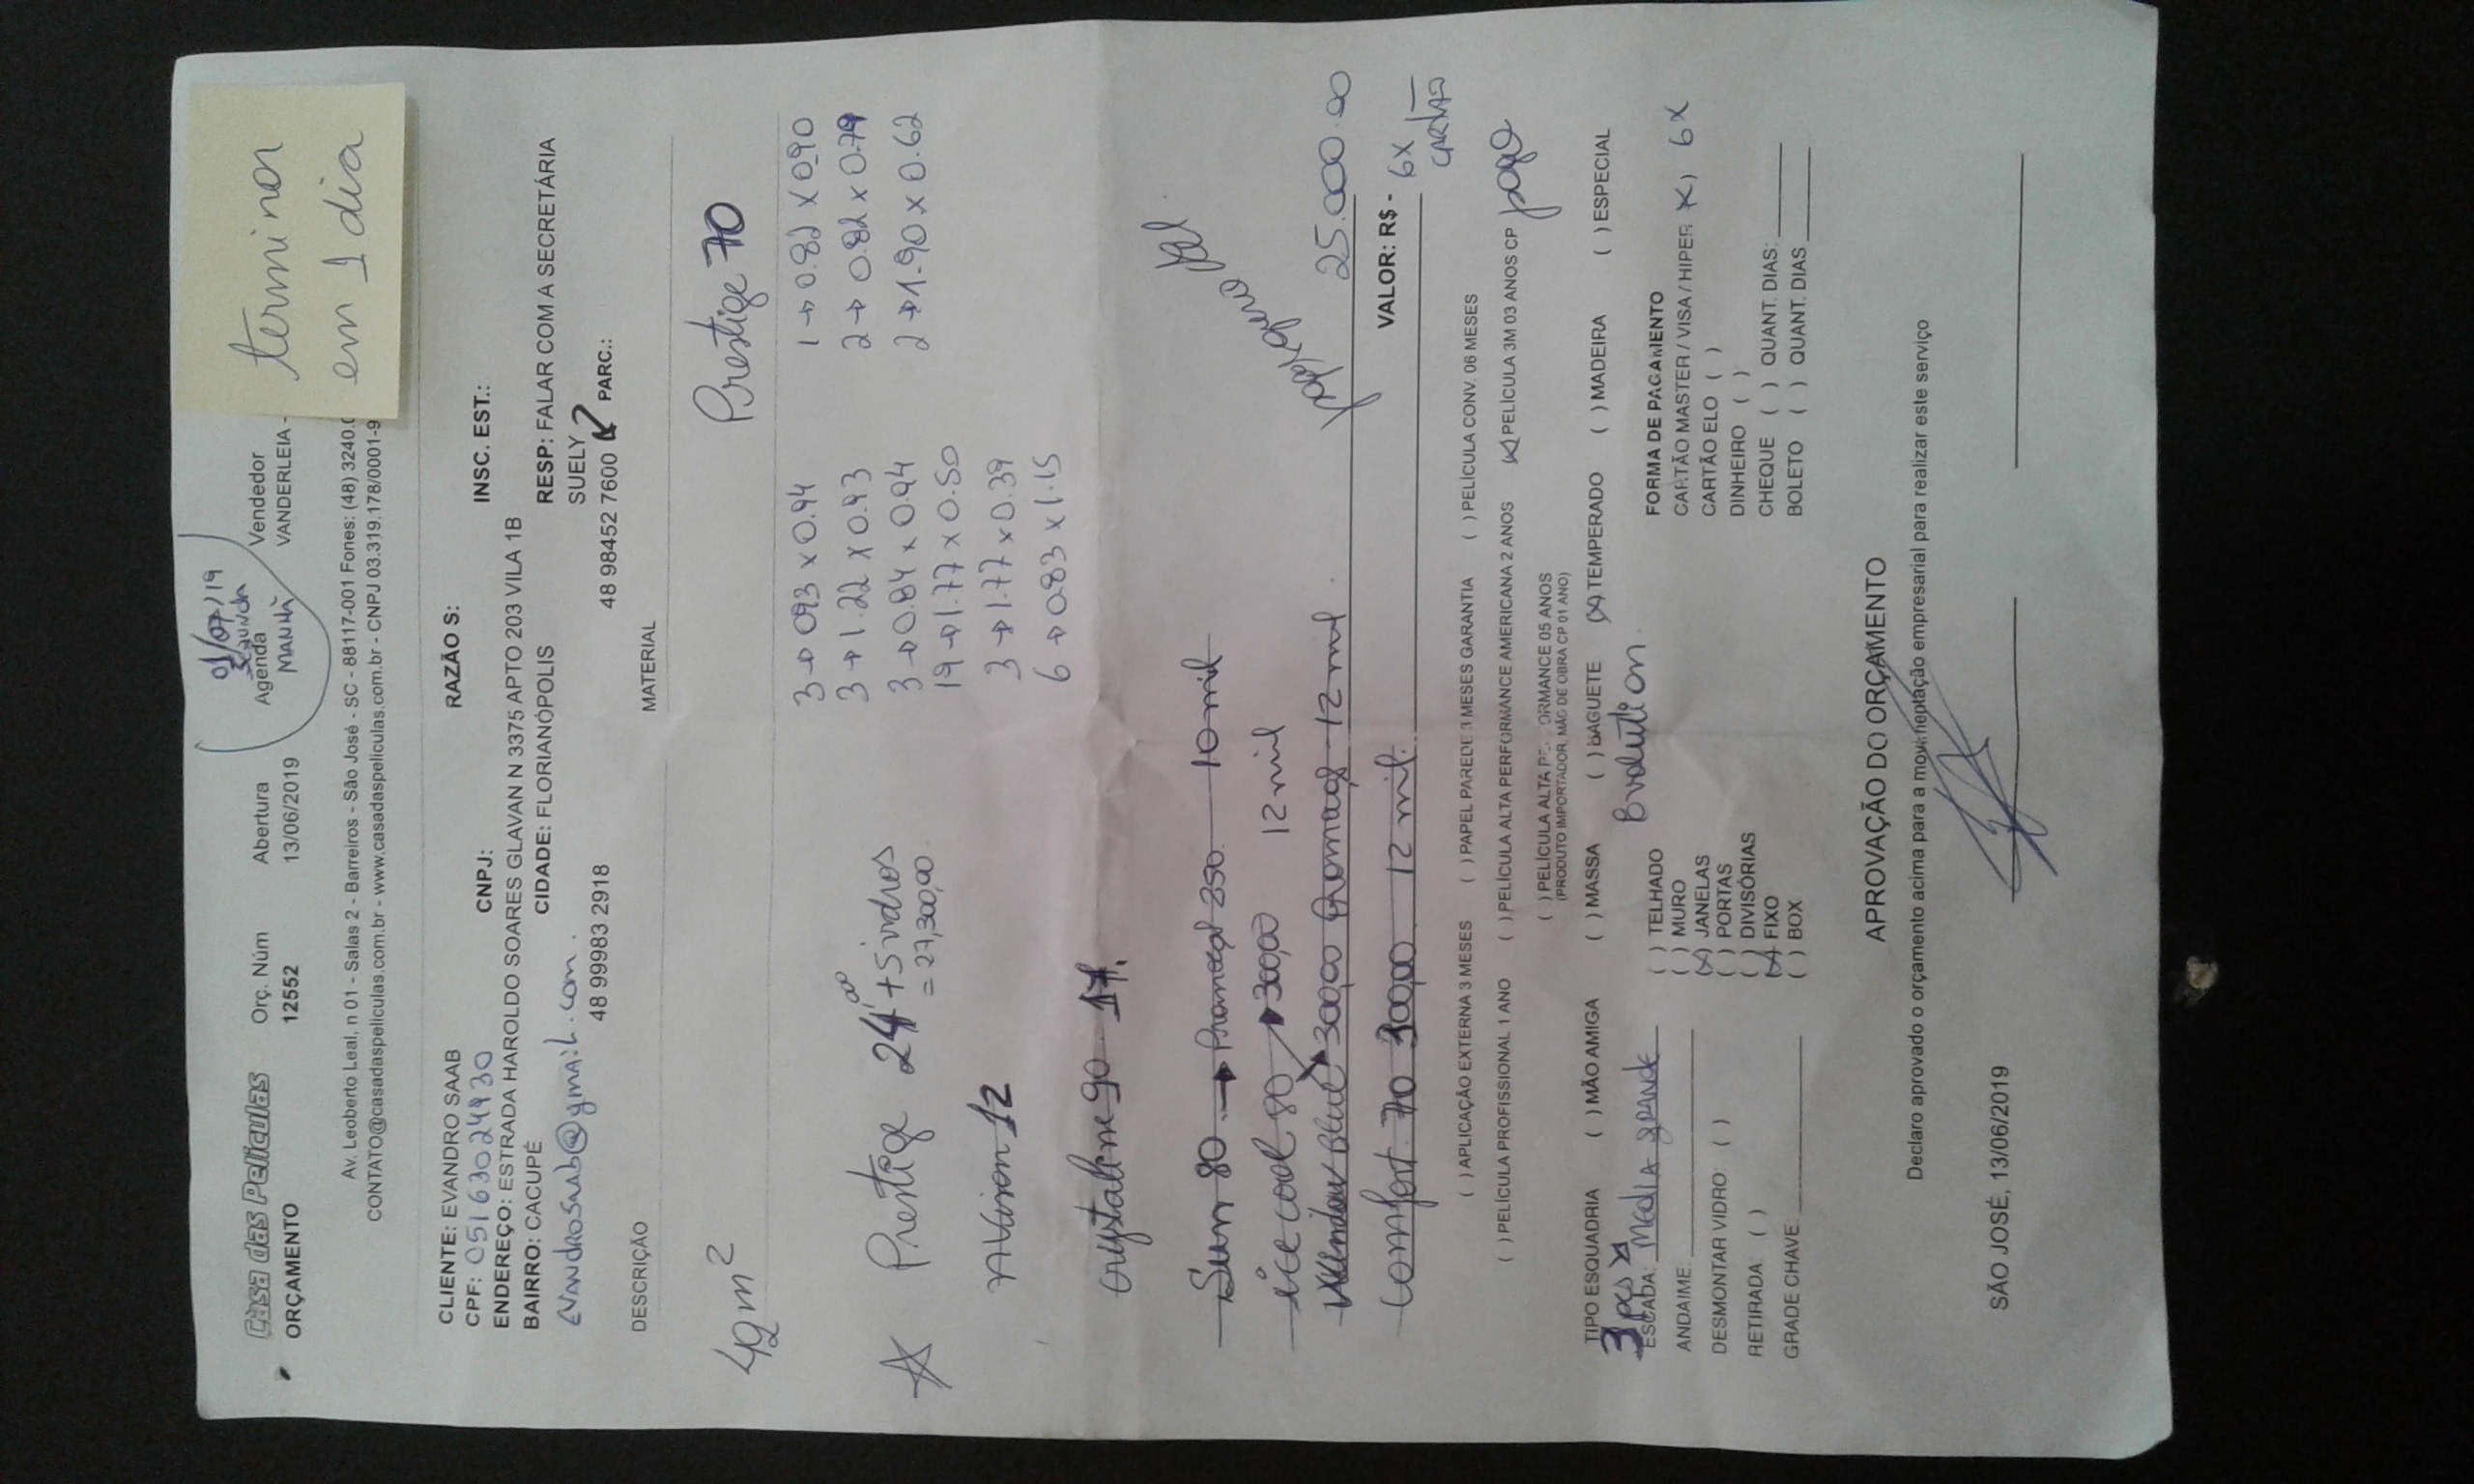 terminar
em 1 dia
Casa das Películas
ORÇAMENTO
Orç. Núm
12552
Abertura
13/06/2019
01/07/19
SEGUNDA
Agenda
MANHÃ
Vendedor
VANDERLEIA -
Av. Leoberto Leal, n 01 - Salas 2 - Barreiros - São José - SC - 88117-001 Fones: (48) 3240.
CONTATO@casadaspeliculas.com.br - www.casadaspeliculas.com.br - CNPJ 03.319.178/0001-9
CLIENTE: EVANDRO SAAB
RAZÃO S:
CPF: 05163024930
CNPJ:
INSC. EST.:
ENDEREÇO: ESTRADA HAROLDO SOARES GLAVAN N 3375 APTO 203 VILA 1B
BAIRRO: CACUPÉ
CIDADE: FLORIANÓPOLIS
RESP: FALAR COM A SECRETÁRIA
SUELY
evandrosaab@gmail.com.
48 99983 2918
48 98452 7600
PARC.:
DESCRIÇÃO
MATERIAL
49m²
Prestige 70
3 → 093 x 0.94
1 → 0.82 x 0.90
3 → 1.22 x 0.93
2 → 0.82 x 0.79
3 → 0.84 x 0.94
2 → 1.90 x 0.62
19 → 1.77 x 0.50
3 → 1.77 x 0.39
6 → 0.83 x 1.15
Prestige 24,00 + 5 vidros
= 27,300,00.
12
90 17.
Sun 80 → 250 10 mil
ice cool 80 → 300,00 12 mil
300,00 12 mil.
Comfort 70 300,00 12 mil.
25.000.00
VALOR: R$ -
6X
CARTÃO
( ) APLICAÇÃO EXTERNA 3 MESES ( ) PAPEL PAREDE 3 MESES GARANTIA ( ) PELÍCULA CONV. 06 MESES
( ) PELÍCULA PROFISSIONAL 1 ANO ( ) PELÍCULA ALTA PERFORMANCE AMERICANA 2 ANOS (X) PELÍCULA 3M 03 ANOS CP pago
( ) PELÍCULA ALTA PERFORMANCE 05 ANOS
(PRODUTO IMPORTADOR, MÃO DE OBRA CP 01 ANO)
TIPO ESQUADRIA ( ) MÃO AMIGA ( ) MASSA ( ) BAGUETE (X) TEMPERADO ( ) MADEIRA ( ) ESPECIAL
3 pçs
ESCADA: media grande
Evolution.
ANDAIME:
DESMONTAR VIDRO: ( )
RETIRADA: ( )
GRADE CHAVE:
( ) TELHADO
( ) MURO
(X) JANELAS
( ) PORTAS
( ) DIVISÓRIAS
(X) FIXO
( ) BOX
FORMA DE PAGAMENTO
CARTÃO MASTER / VISA / HIPER (X) 6X
CARTÃO ELO ( )
DINHEIRO ( )
CHEQUE ( ) QUANT. DIAS:
BOLETO ( ) QUANT. DIAS
APROVAÇÃO DO ORÇAMENTO
Declaro aprovado o orçamento acima para a movimentação empresarial para realizar este serviço
SÃO JOSÉ, 13/06/2019